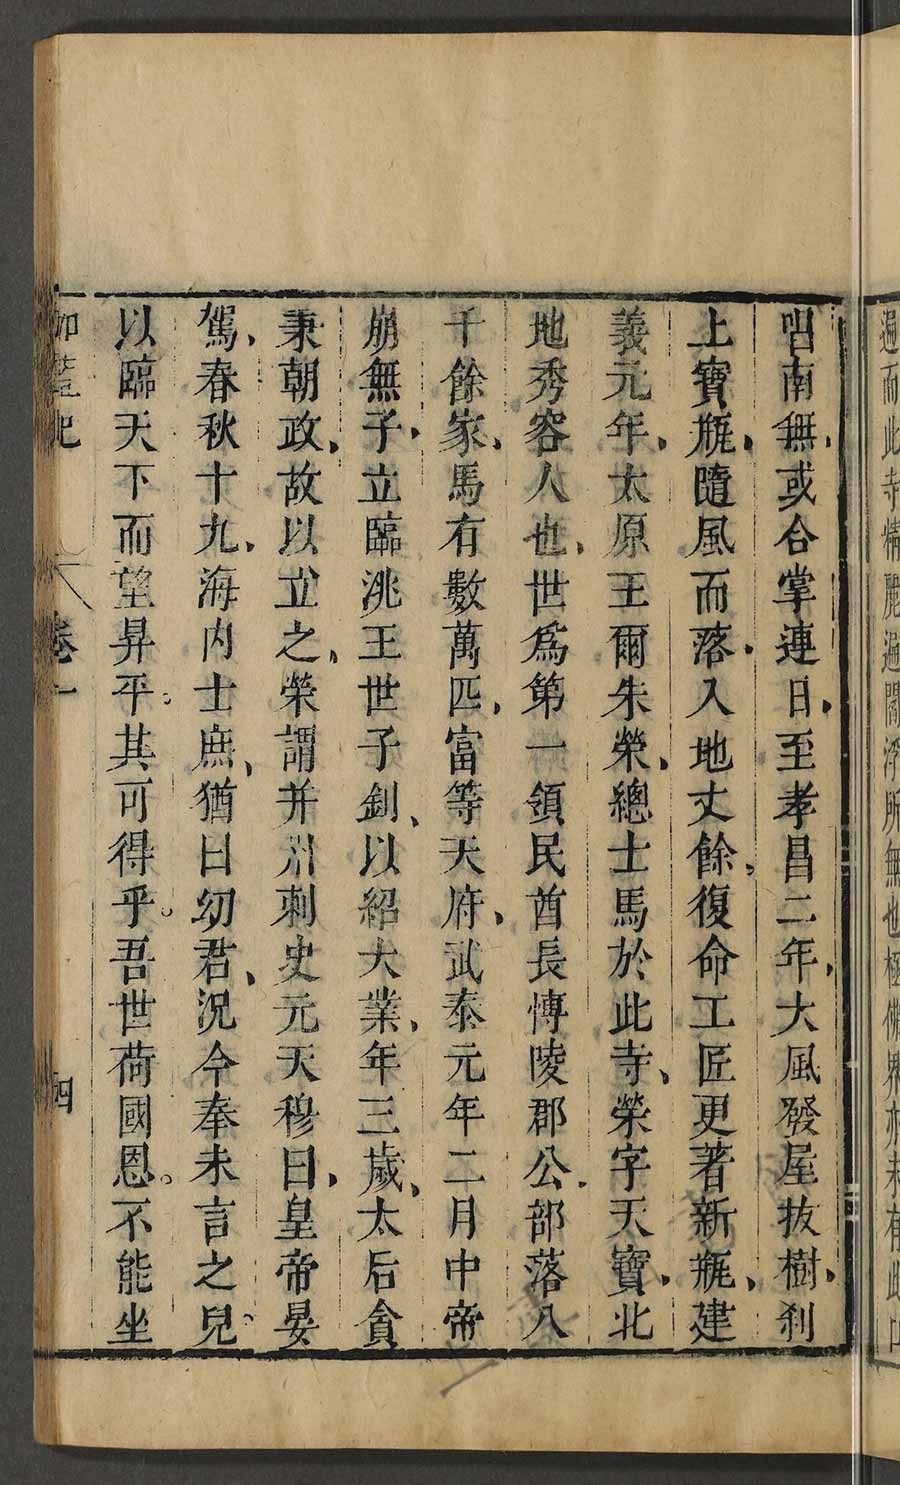 遍而此寺精麗遍閻浮所無也極佛界亦未有此口
唱南無或合掌連日至孝昌二年大風發屋拔樹刹
上寶瓶隨風而落入地丈餘復命工匠更著新瓶建
義元年太原王爾朱榮總士馬於此寺榮字天寶北
地秀容人也世爲第一領民酋長愽陵郡公部落八
千餘家馬有數萬匹富等天府武泰元年二月中帝
崩無子立臨洮王世子釗以紹大業年三歲太后貪
秉朝政故以立之榮謂并州刺史元天穆曰皇帝晏
駕春秋十九海内士庶猶曰幼君況今奉未言之兒
以臨天下而望昇平其可得乎吾世荷國恩不能坐
卷一
四